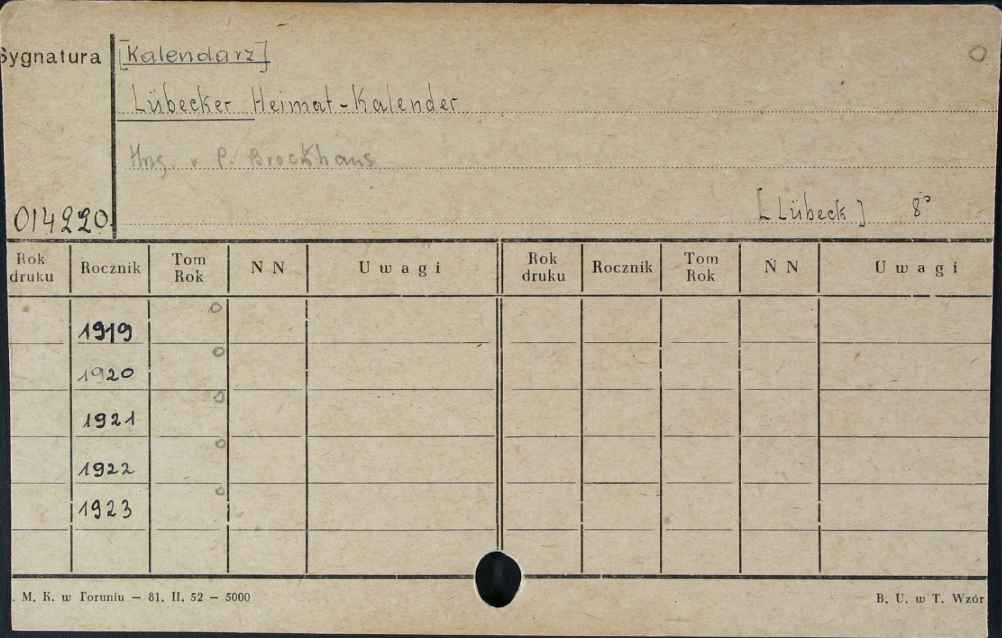 Sygnatura [Kalendarz]
Lübecker Heimat-Kalender
Hrsg. v P. Brockhaus
014220 [Lübeck] 8°
Rok druku Rocznik Tom Rok N N Uwagi Rok druku Rocznik Tom Rok N N Uwagi
1919
1920
1921
1922
1923
. M. K. w Toruniu — 81. II. 52 — 5000 B. U. w T. Wzór